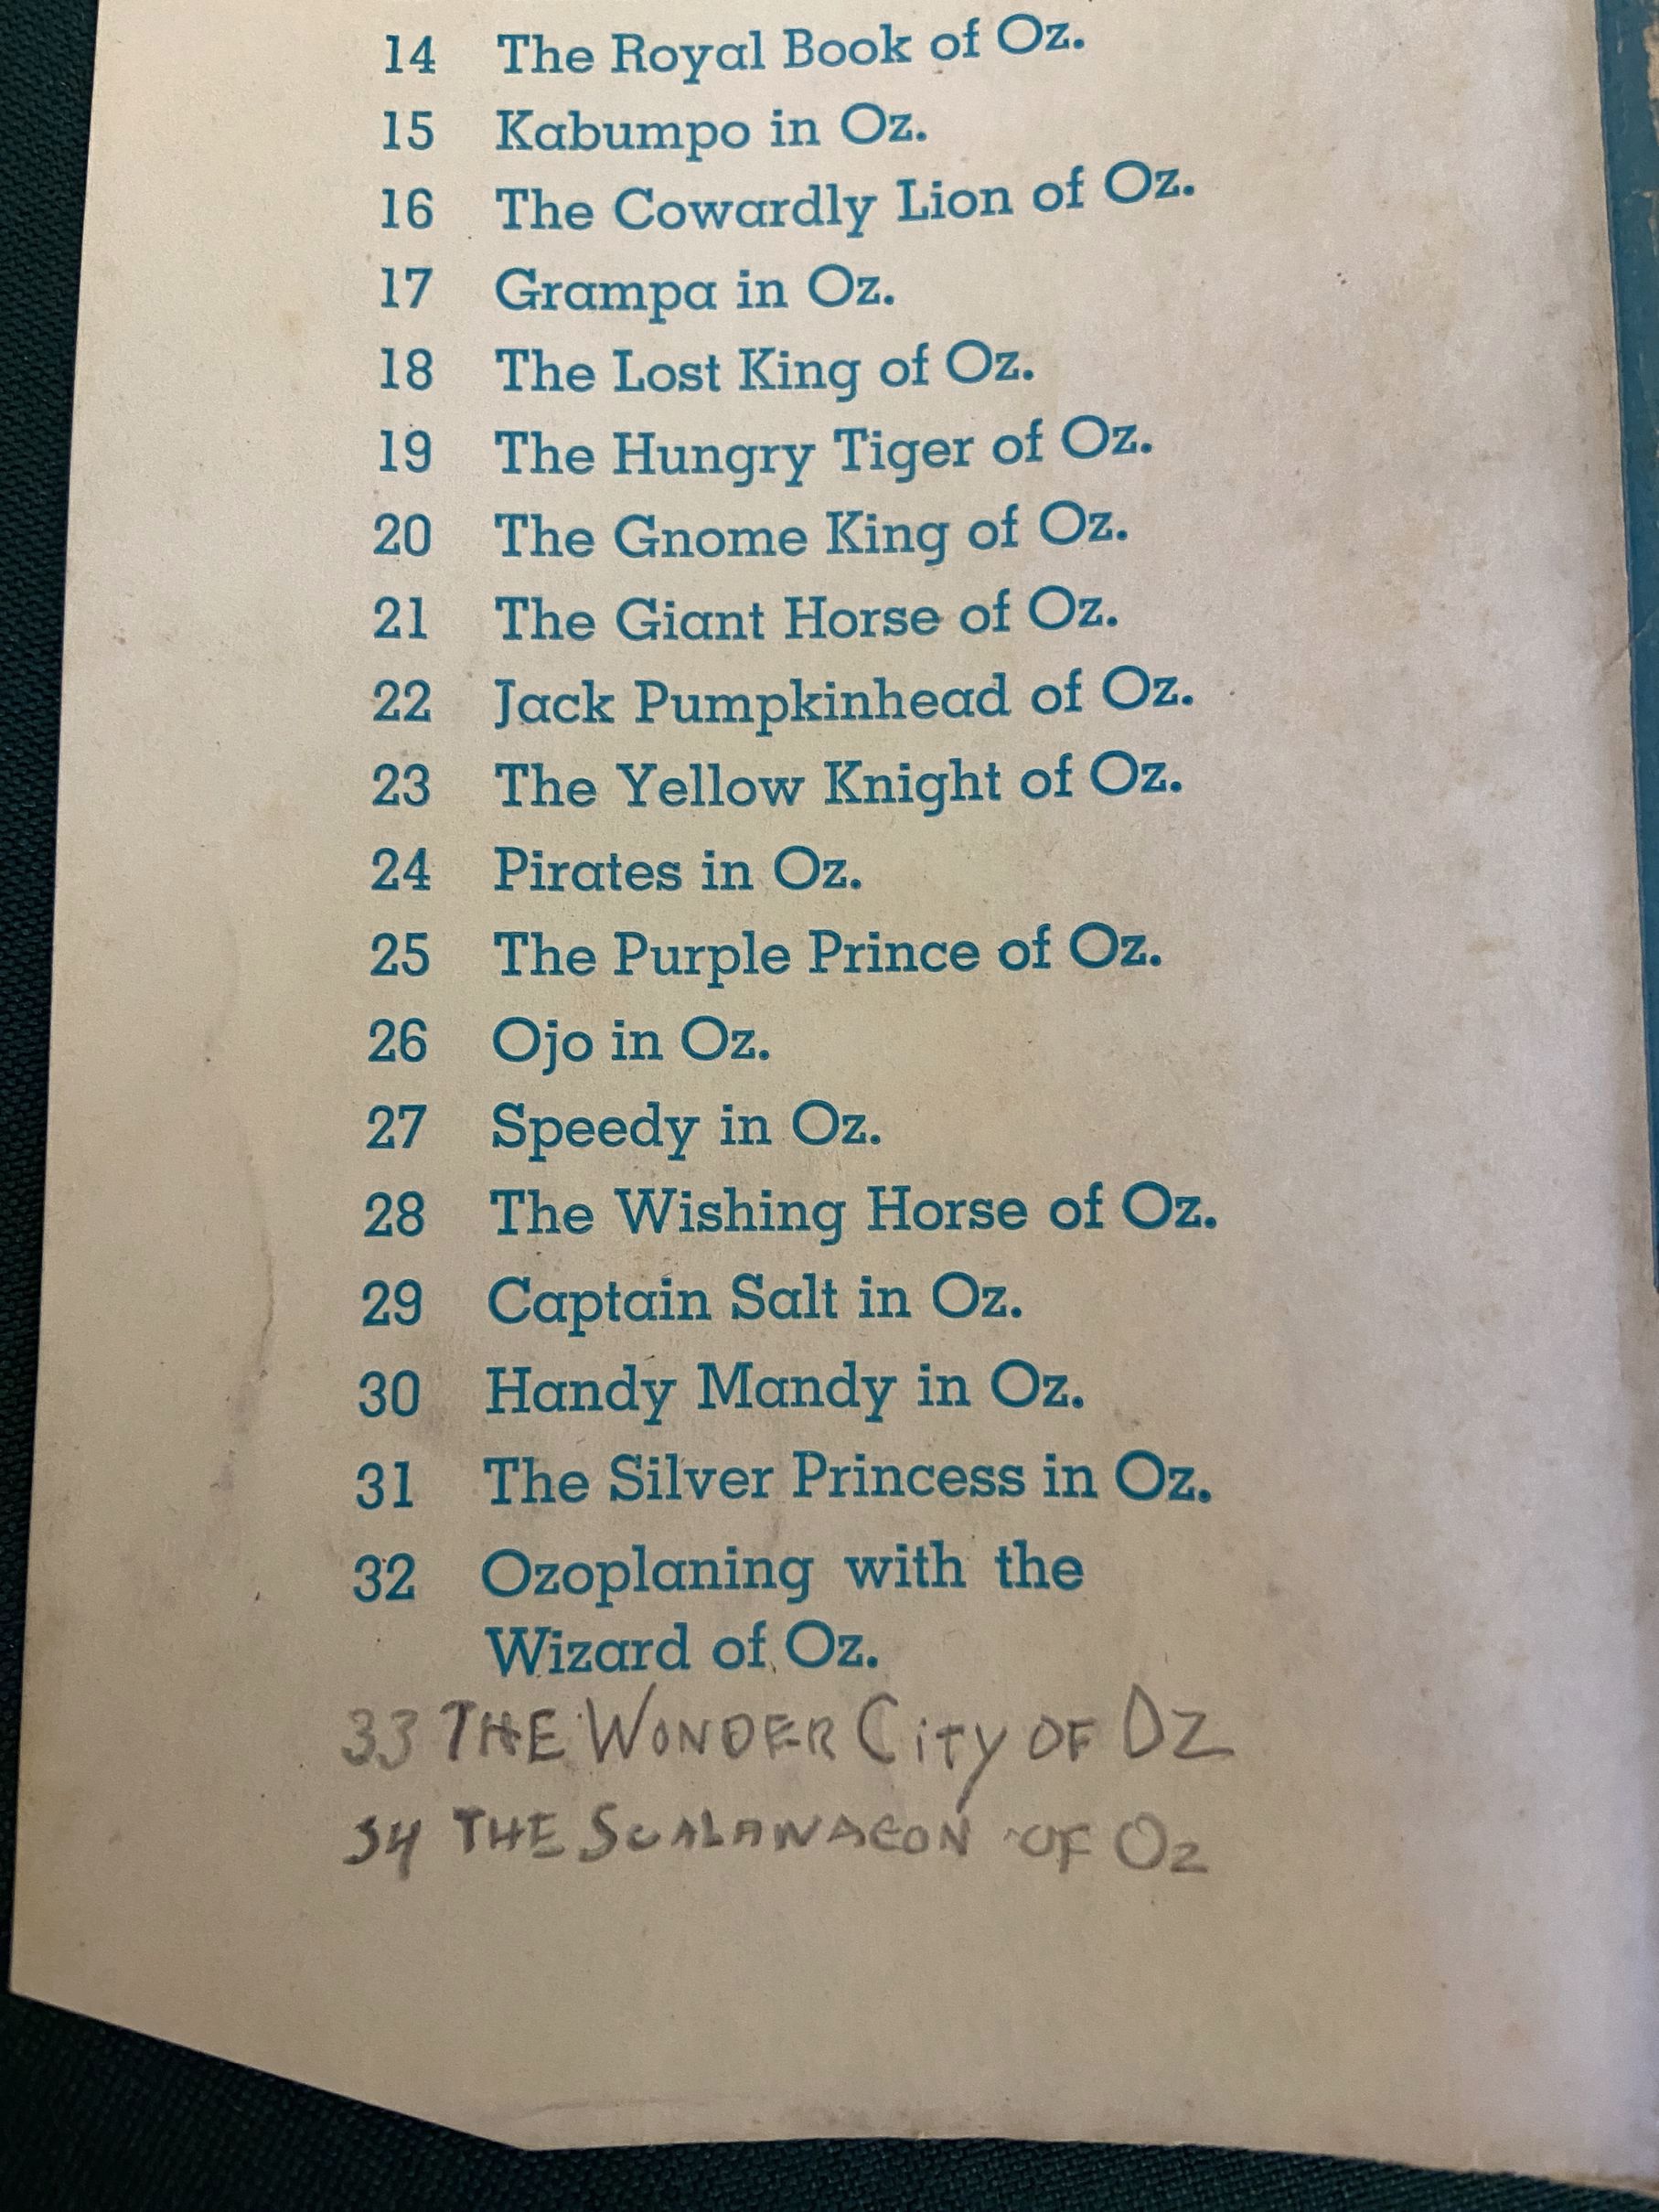 14 The Royal Book of Oz.
15 Kabumpo in Oz.
16 The Cowardly Lion of Oz.
17 Grampa in Oz.
18 The Lost King of Oz.
19 The Hungry Tiger of Oz.
20 The Gnome King of Oz.
21 The Giant Horse of Oz.
22 Jack Pumpkinhead of Oz.
23 The Yellow Knight of Oz.
24 Pirates in Oz.
25 The Purple Prince of Oz.
26 Ojo in Oz.
27 Speedy in Oz.
28 The Wishing Horse of Oz.
29 Captain Salt in Oz.
30 Handy Mandy in Oz.
31 The Silver Princess in Oz.
32 Ozoplaning with the
Wizard of Oz.
33 THE WONDER CiTy OF OZ
34 THE SCALAWAGON OF Oz